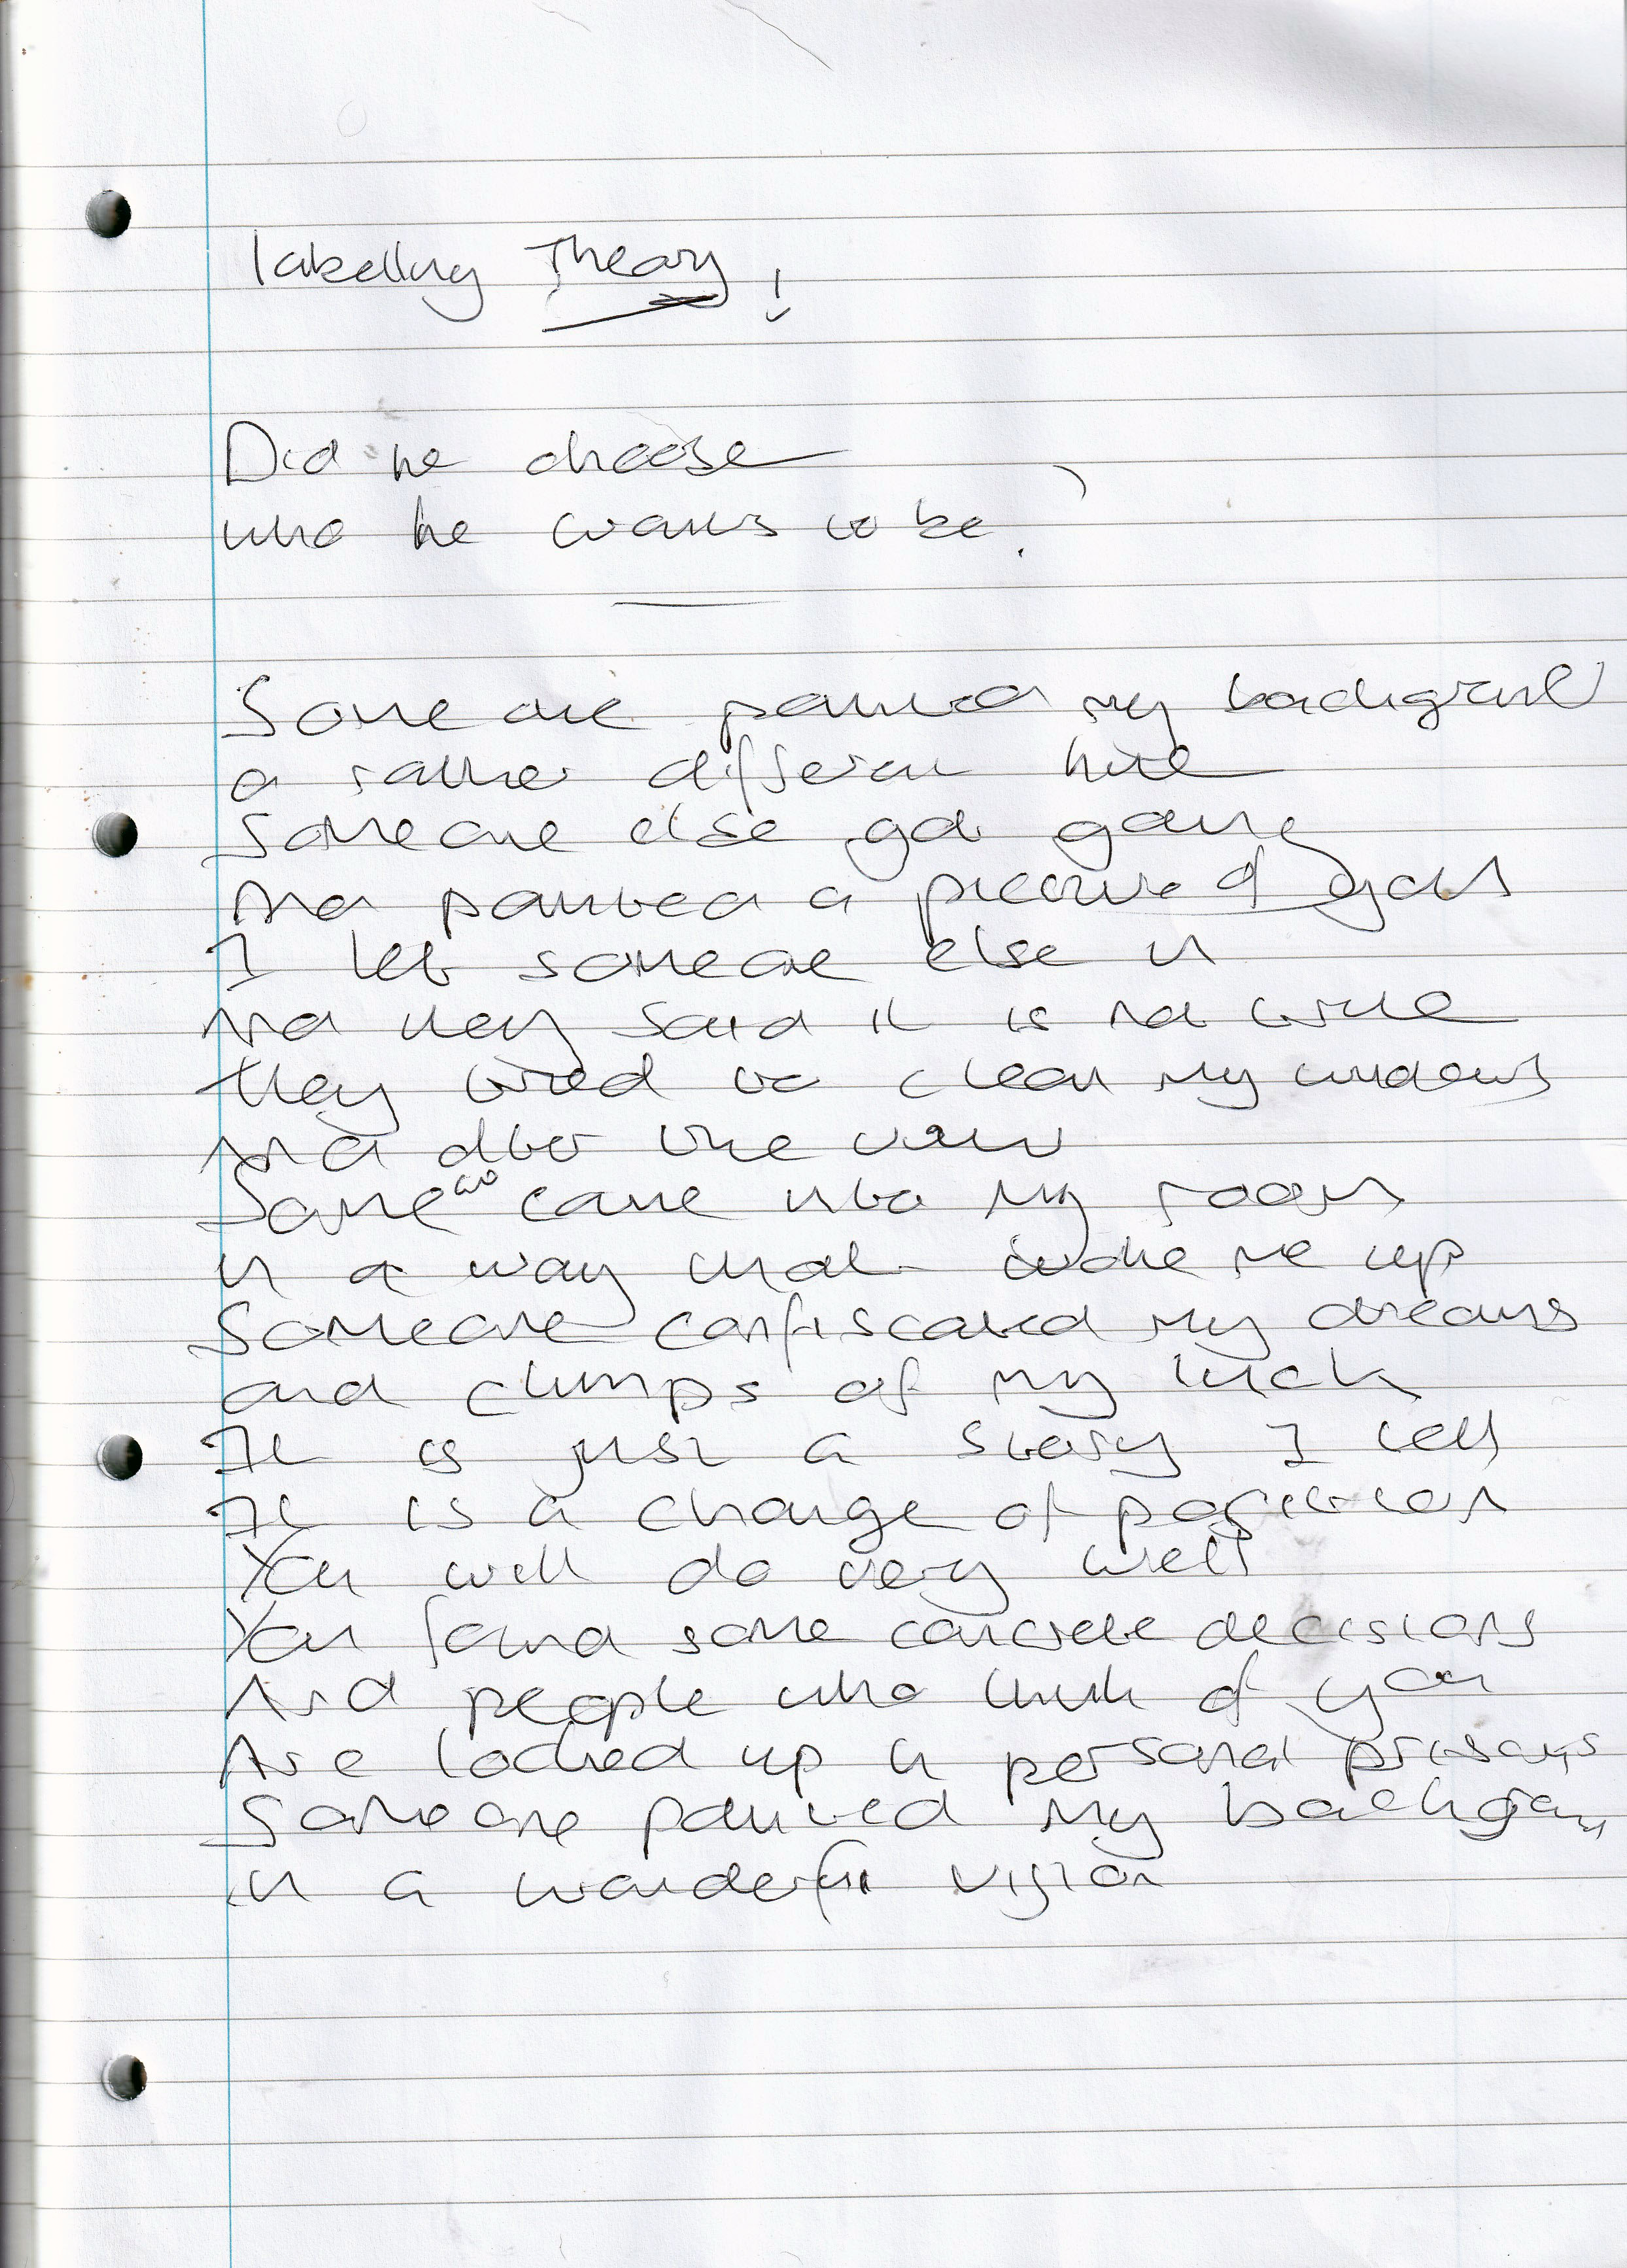 labelling Theory!
Did he choose
who he wants to be?
Someone painted my background
a rather different hue
Someone else got going
And painted a picture of you
I let someone else in
And they said it is not true
they tried to clean my windows
And alter the view
Someone came into my room
in a way that woke me up
Someone confiscated my dreams
and clumps of my luck
It is just a story I tell
It is a change of position
You will do very well
You found some concrete decisions
And people who think of you
Are locked up in personal prisons
Someone painted my background
in a wonderful vision